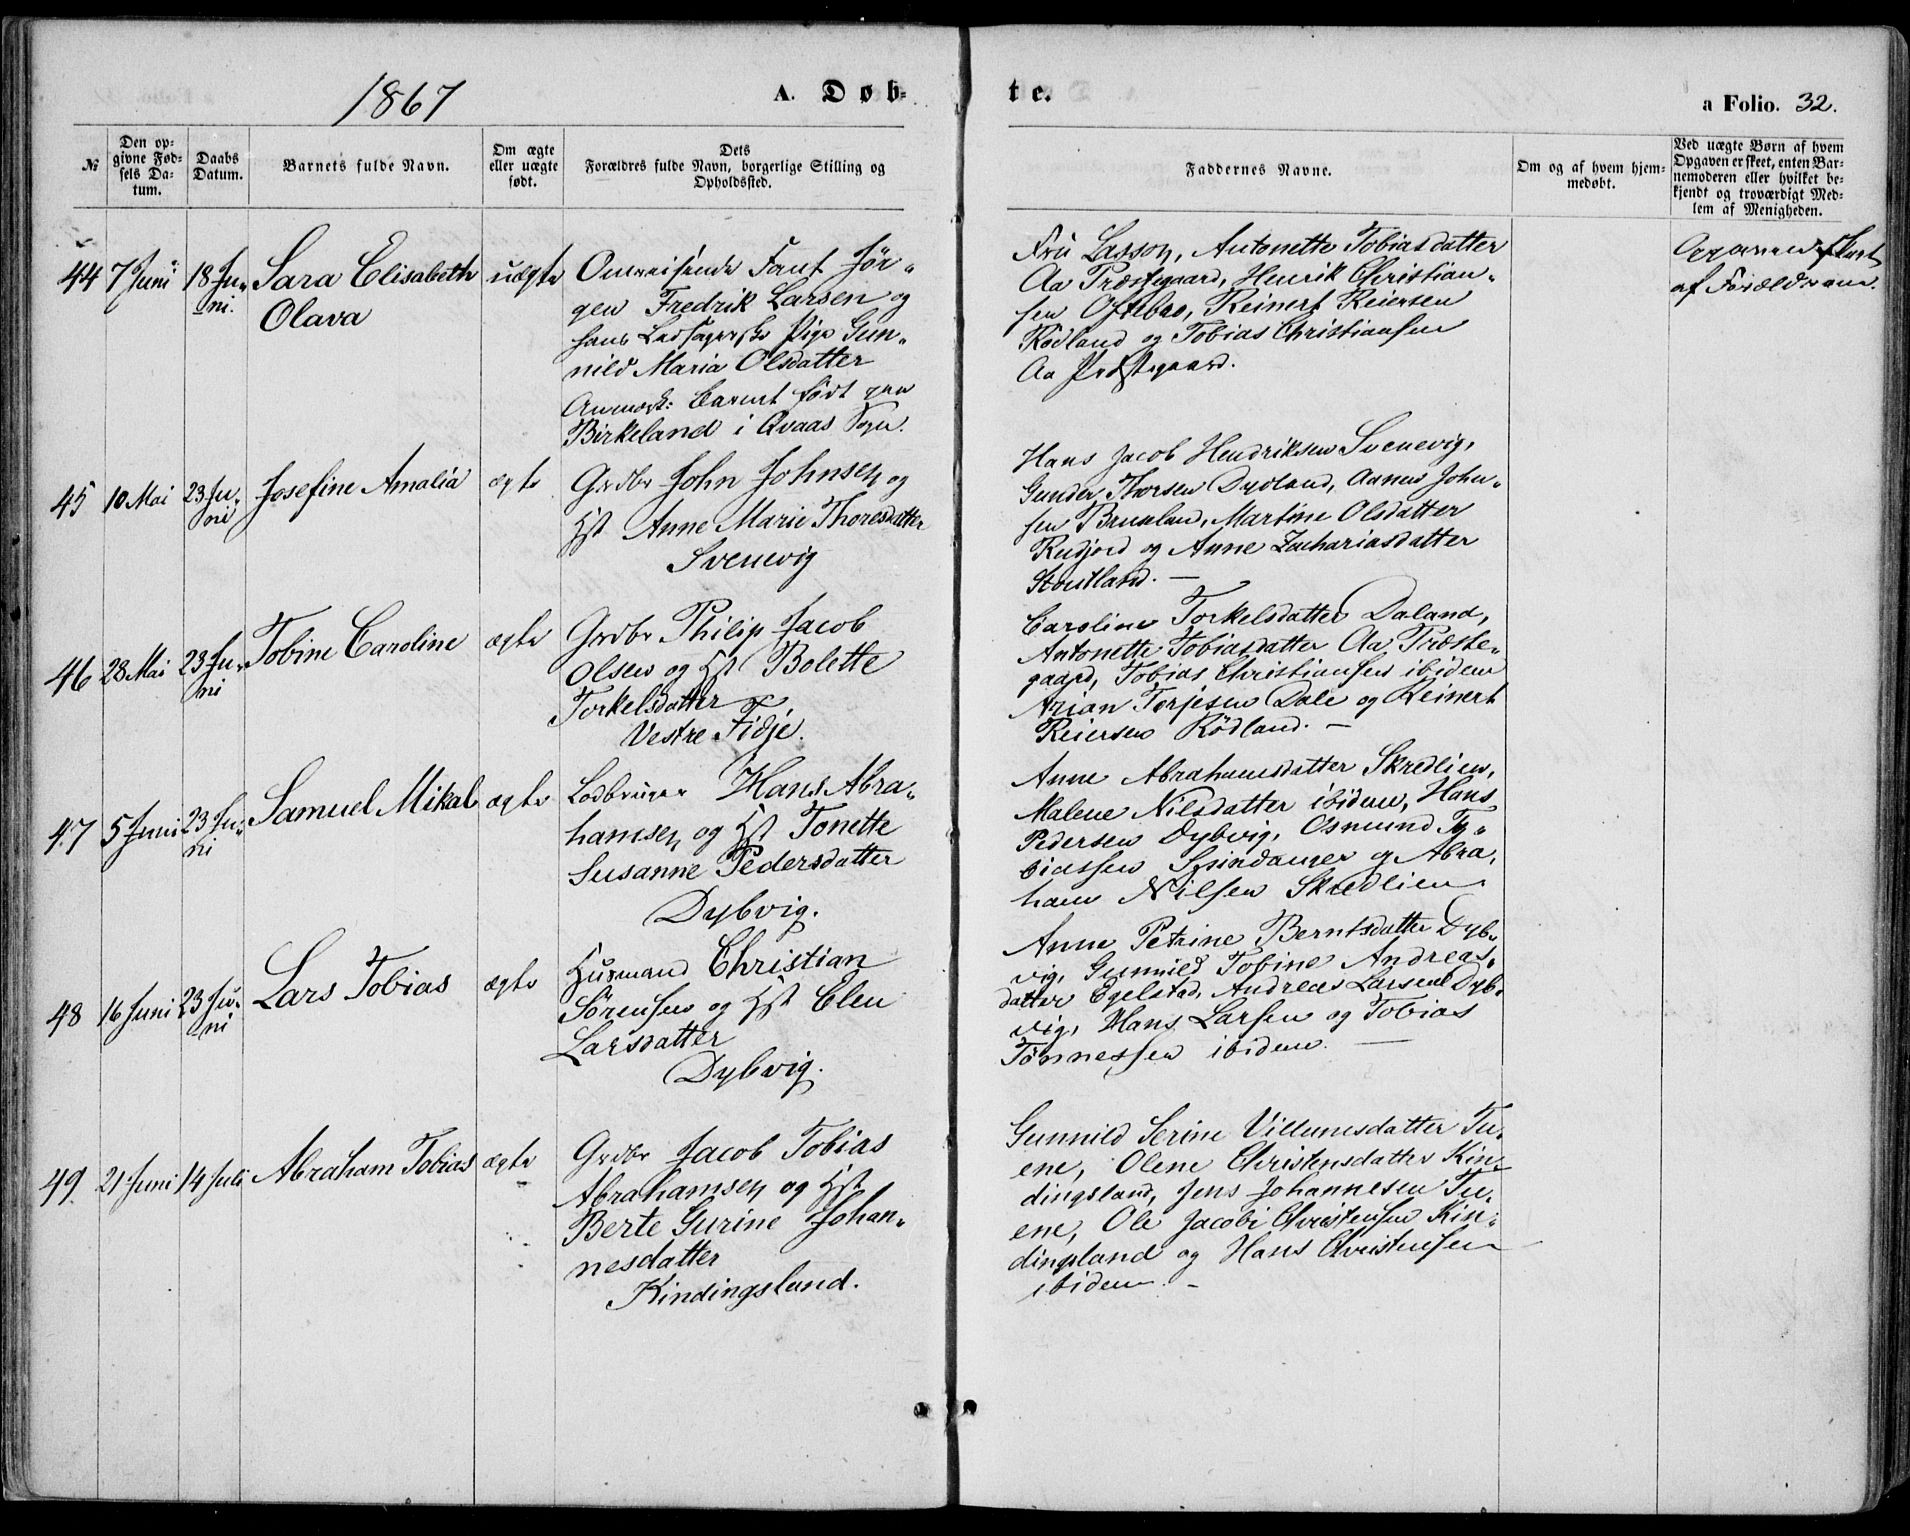 1867
A. Døb-
te.
a Folio. 32.
№
Den op-
givne Fød-
sels Da-
tum.
Daabs
Datum.
Barnets fulde Navn.
Om ægte
eller uægte
født.
Dets
Forældres fulde Navn, borgerlige Stilling og
Opholdssted.
Faddernes Navne.
Om og af hvem hjem-
medøbt.
Ved uægte Børn af hvem
Opgaven er skeet, enten Bar-
nemoderen eller hvilket be-
kjendt og troværdigt Med-
lem af Menigheden.
44 7 Juni 18 Ju-
ni.
Sara Elisabeth
Olava
uægte
Omreisende Fant Jør-
gen Fredrik Larsen og
hans Ledsagerske Pige Gun-
nild Maria Olsdatter
Anmærk: Barnet født paa
Birkeland i Qvaas Sogn.
Fru Lasson, Antonette Tobiasdatter
Aa Præstegaard, Henrik Christian-
sen Oftebro, Reinert Reiersen
Rödland og Tobias Christiansen
Aa Præstegaard.
Opgaven skeet
af Forældrene.
45 10 Mai 23 Ju-
ni
Josefine Amalia
ægte
Grdbr John Johnsen og
Hst Anne Marie Thoresdatter
Svenevig
Hans Jacob Hendriksen Svenevig,
Gunder Thorsen Dydland, Aanen John-
sen, Martine Olsdatter
Rudjord og Anne Zachariasdatter
46 28 Mai 23 Ju-
ni
Tobine Caroline
ægte
Grdbr Philip Jacob
Olsen og Hst Bolette
Torkelsdatter
Vestre Fidje.
Caroline Torkelsdatter Daland,
Antonette Tobiasdatter Aa Præste-
gaard, Tobias Christiansen ibidem
Arian Torjesen Dale og Reinert
Reiersen Rödland. —
47 5 Juni 23 Ju-
ni
Samuel Mikal
ægte
Lodbruger Hans Abra-
hamsen og Hst Tonette
Susanne Pedersdatter
Dybvig.
Anne Abrahamsdatter Skredlien,
Malene Nilsdatter ibidem, Hans
Pedersen Dybvig, Osmund To-
biassen Spindanger og Abra-
ham Nilsen Skredlien
48 16 Juni 23 Ju-
ni
Lars Tobias
ægte
Husmand Christian
Sörensen og Hst Elen
Larsdatter
Dybvig.
Anne Petrine Berntsdatter Dyb-
vig, Gunnild Tobine Andreas-
datter Egelstad, Andreas Larsen Dyb-
vig, Hans Larsen og Tobias
Tönnessen ibidem. —
49. 21 Juni 14 Juli
Abraham Tobias
ægte
Grdbr Jacob Tobias
Abrahamsen og Hst
Berte Gurine Johan-
nesdatter
Kindingsland.
Gunnild Serine Villumsdatter Tu-
ene, Olene Christensdatter Kin-
dingsland, Jens Johannesen Tu-
ene, Ole Jacobi Christensen Kin-
dingsland og Hans Christensen
ibidem. —